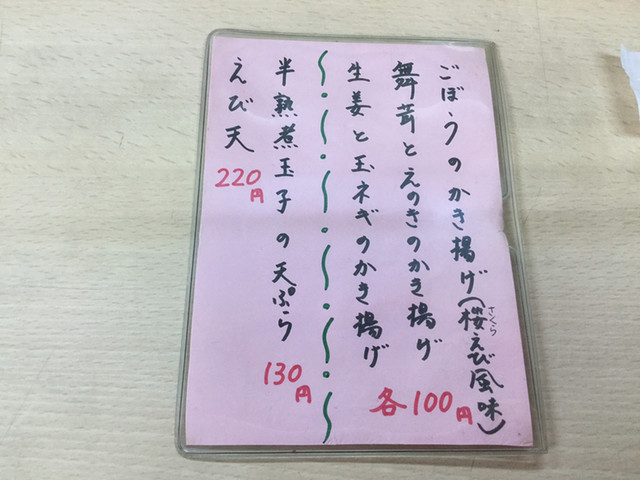 ごぼうのかき揚げ(桜えび風味)
さくら
舞茸とえのきのかき揚げ
生姜と玉ネギのかき揚げ
各100円
半熟煮玉子の天ぷら
130円
えび天
220円